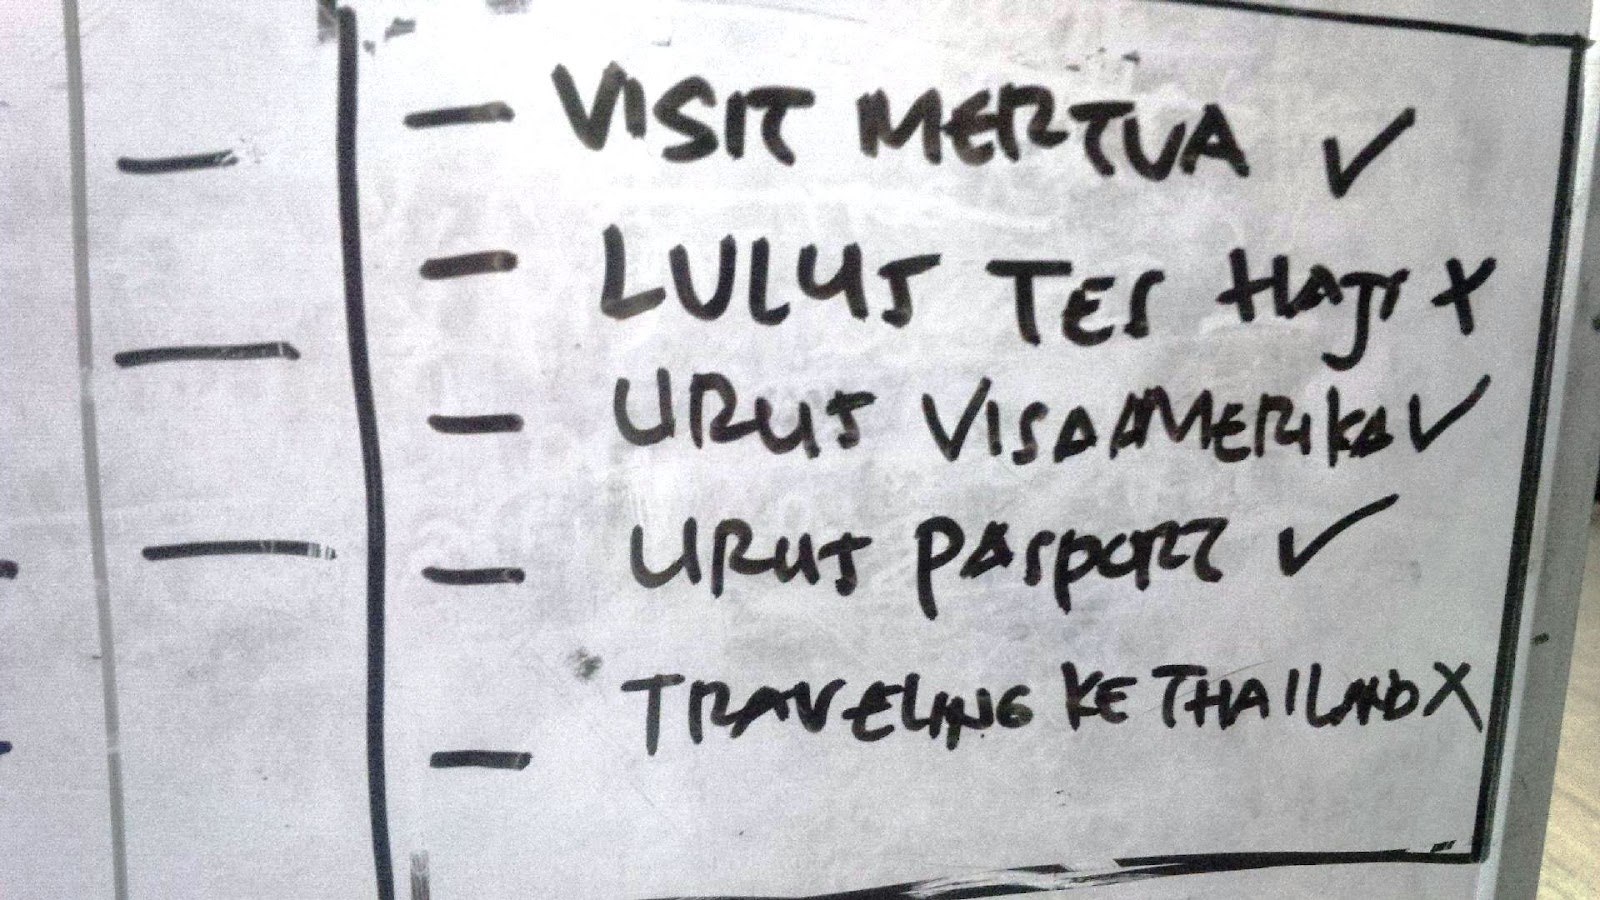 - VISIT MERTUA ✓
- LULUS TES HAJI X
- URUS VISA AMERIKA ✓
- URUS PASPORT ✓
- TRAVELING KE THAILAND X